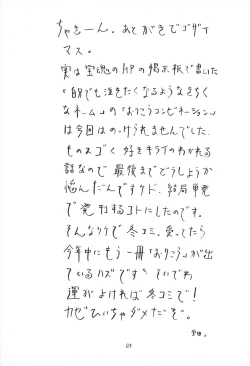 ちゃきーん。あとがきでゴザイ
マス。
実は宝魂のHPの掲示板で書いた
「自分でも泣きたくなるようなきちく
なネーム」の「おりこうコンビネーション」
は今回はのっけられませんでした。
ものスゴく好ききライのわかれる
話なので最後までどうしようか
悩んだんですケド、結局単発
で発刊するコトにしたのです。
そんなワケで冬コミ、受ってたら
今年中にもう一冊「おりこう」が出
ているハズです。ていでわ
運がよければ冬コミで!
カゼひいちゃダメだぞ。